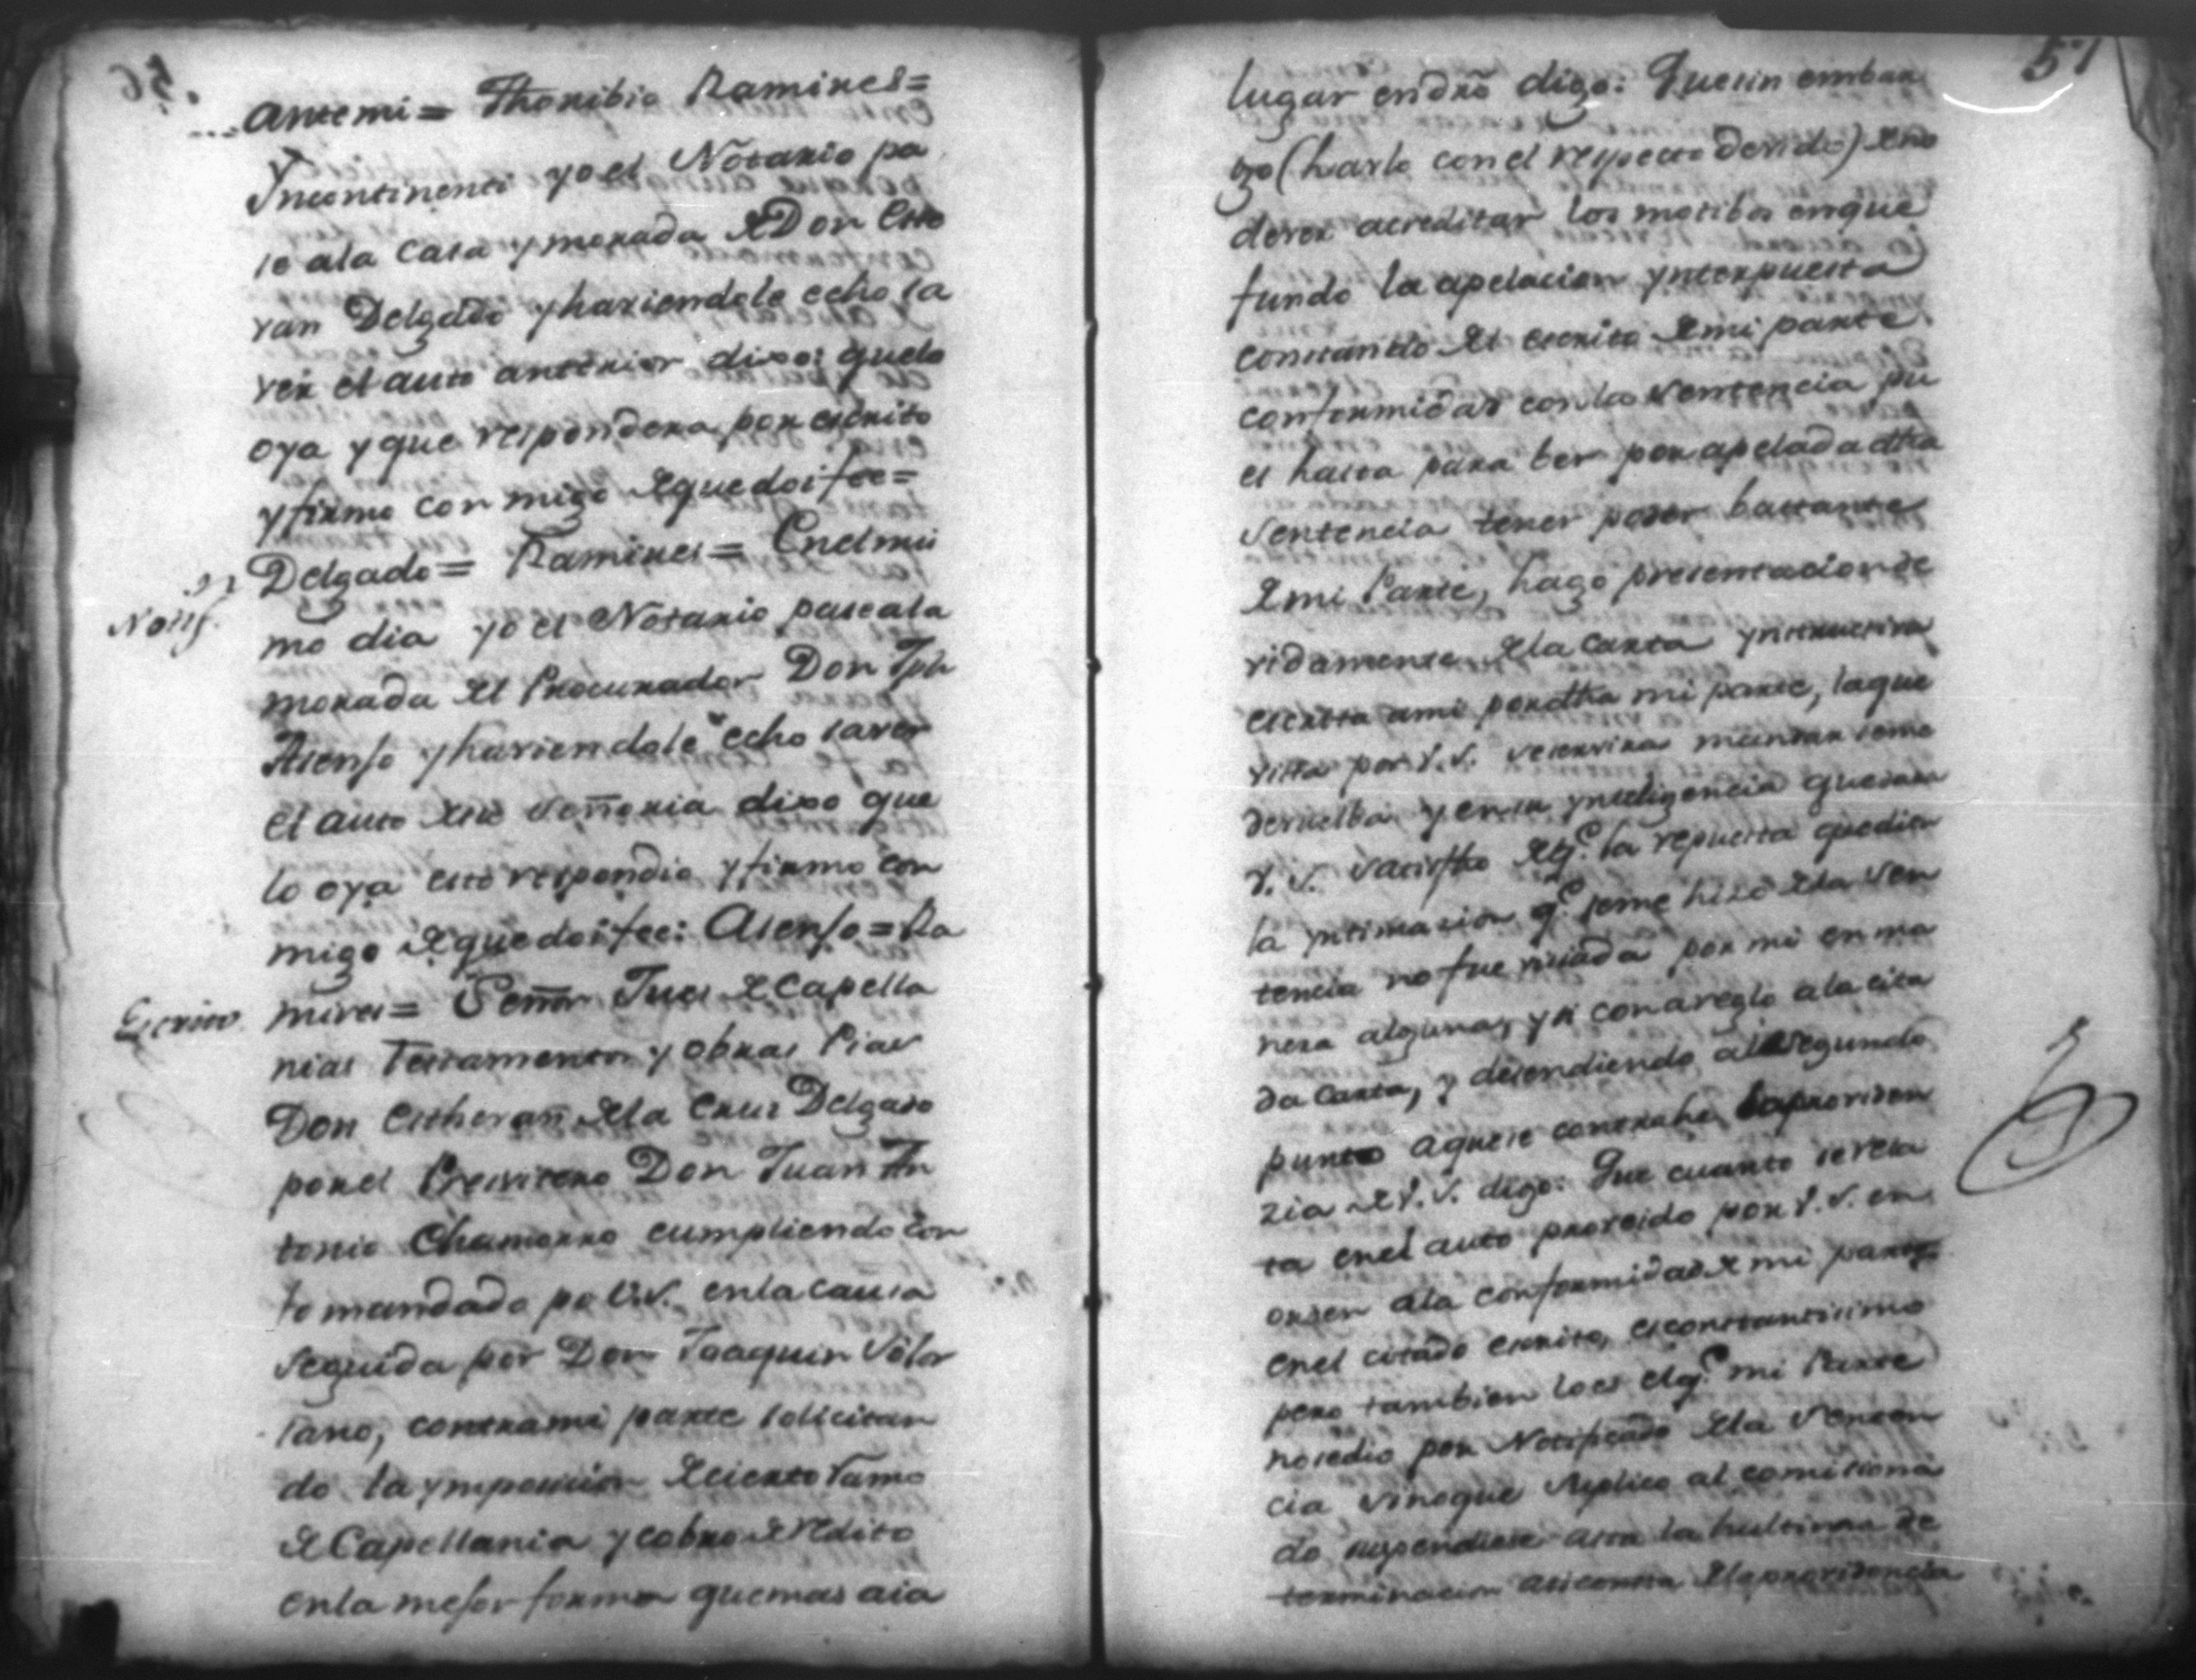 56
antemi = Thoribio Ramires =
Yncontinenti yo el Notario pa
se ala casa y morada de Don Este
van Delgado y haviendole echo sa
ver el auto anterior dixo: quelo
oya y que respondera por escrito
y firmo conmigo de que doi fee =
Delgado = Ramires = Enel mis
Notif.
mo dia yo el Notario pase ala
morada del Procurador Don Jph
Asenso y haviendole echo saver
el auto de su señoria dixo que
lo oya esto respondio y firmo con
migo de que doi fee: Asenso = Ra
Escrito
mires = Señor Jues de Capella
nias Testamentos y obras Pias
Don Esthevan de la Crus Delgado
por el Presvitero Don Juan An
tonio Chamorro cumpliendo con
lo mandado po V.S. enla causa
seguida por Don Joaquin Solor
sano, contra mi parte solicitan
do la ymposicion de cierto ramo
de Capellania y cobro de redito
enla mejor forma que mas aia
57
lugar en dro digo: Que sin embar
go (hablo con el respecto devido) de no
dever acreditar los motibos en que
fundo la apelacion ynterpuesta
constando del escrito de mi parte
conformidad con la sentencia pu
es basta para ber por apelada dha
sentencia tener poder bastante
de mi Parte, hago presentacion de
vidamente de la carta ynstructiva
escrita a mi por dha mi parte, la que
vista por V.S. se servira mandar se me
debuelba y en su ynteligencia quedara
V.S. satisfho de q.e la repuesta que di en
la yntimacion q.e se me hizo de la sen
tencia no fue viciada por mi en ma
nera alguna, y si con areglo a la cita
da carta, y decendiendo al segundo
punto a que se contrahe la providen
zia de V.S. digo: Que cuanto se rela
ta en el auto proveido por V.S. en
orden ala conformidad de mi parte
en el citado escrito, es constantisimo
pero tambien lo es el q.e mi Parte
no se dio por Notificado de la senten
cia sino que suplico al comisiona
do suspendiese asta la hultima de
terminacion asi consta de la providencia